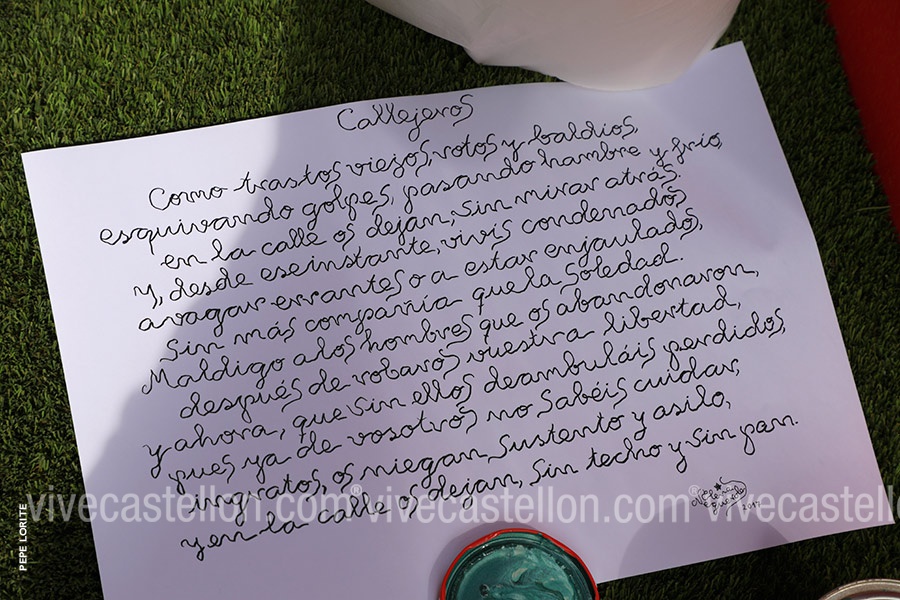 Callejeros
Como trastos viejos, rotos y baldíos,
esquivando golpes, pasando hambre y frío,
en la calle os dejan, sin mirar atrás.
Y, desde ese instante, vivís condenados
a vagar errantes o a estar enjaulados,
sin más compañía que la soledad.
Maldigo a los hombres que os abandonaron,
después de robaros vuestra libertad,
y ahora, que sin ellos deambuláis perdidos,
pues ya de vosotros no sabéis cuidar,
ingratos, os niegan sustento y asilo,
y en la calle os dejan, sin techo y sin pan.
2017
vivecastellon.com® vivecastellon.com® vivecastellon.com® vivecastellon
PEPE LORITE